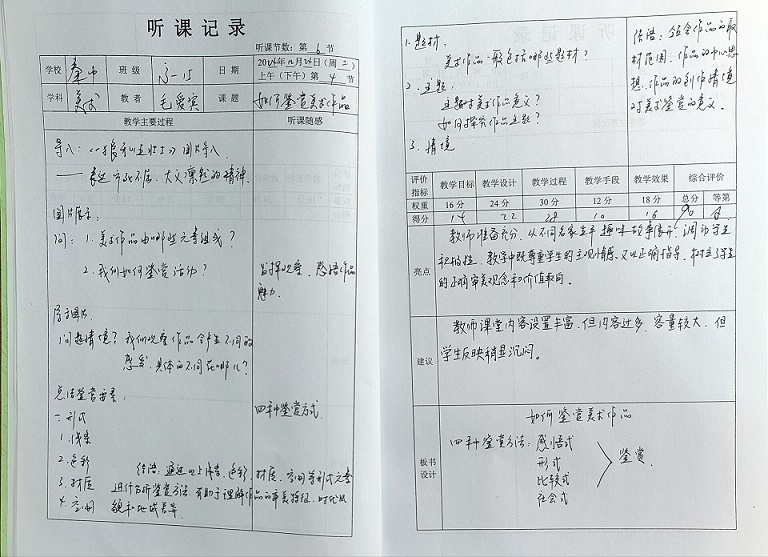 听课记录
听课节数：第 6 节
学校 班级 高一15 日期 20 年12月 日（周二）
上午（下午）第 4 节
学科 美术 教者 毛爱宾 课题 如何鉴赏美术作品
教学主要过程 听课随感
导入：《狼牙山五壮士》图片导入．
—— 表达 宁死不屈、大义凛然的精神．
图片展示：
问：1. 美术作品由哪些元素组成？
2. 我们如何鉴赏活动？
观察、感悟作品
魅力．
问题情境？我们观察作品会产生不同的
感受，具体的不同在哪儿？
四种鉴赏方式．
一. 形式
1. 线条
2. 色彩
3. 材质
4. 空间
结语：通过以上线条、色彩、材质、空间等形式元素
进行分析鉴赏方法，有助于理解作品的审美特征、时代
1. 题材：
美术作品一般包括哪些题材？
2. 主题：
主题对美术作品意义？
如何探究作品主题？
3. 情境
结语：领会作品的取
材范围、作品的中心思
想、作品的创作情境
对美术鉴赏的意义．
评价指标 教学目标 教学设计 教学过程 教学手段 教学效果 综合评价
权重 16分 24分 30分 12分 18分 总分 等第
得分 14 22 28 10 16 90 A
亮点
教师准备充分，从不同名家生平趣味故事展开，调动学生
积极性．教学中既尊重学生的主观情感，又以正确指导，树立了学生
的正确审美观念和价值取向．
建议
教师课堂内容设置丰富，但内容过多，容量较大，但
学生反映稍显沉闷．
板书设计
如何鉴赏美术作品
四种鉴赏方法：感悟式
形式
比较式
社会式
鉴赏．